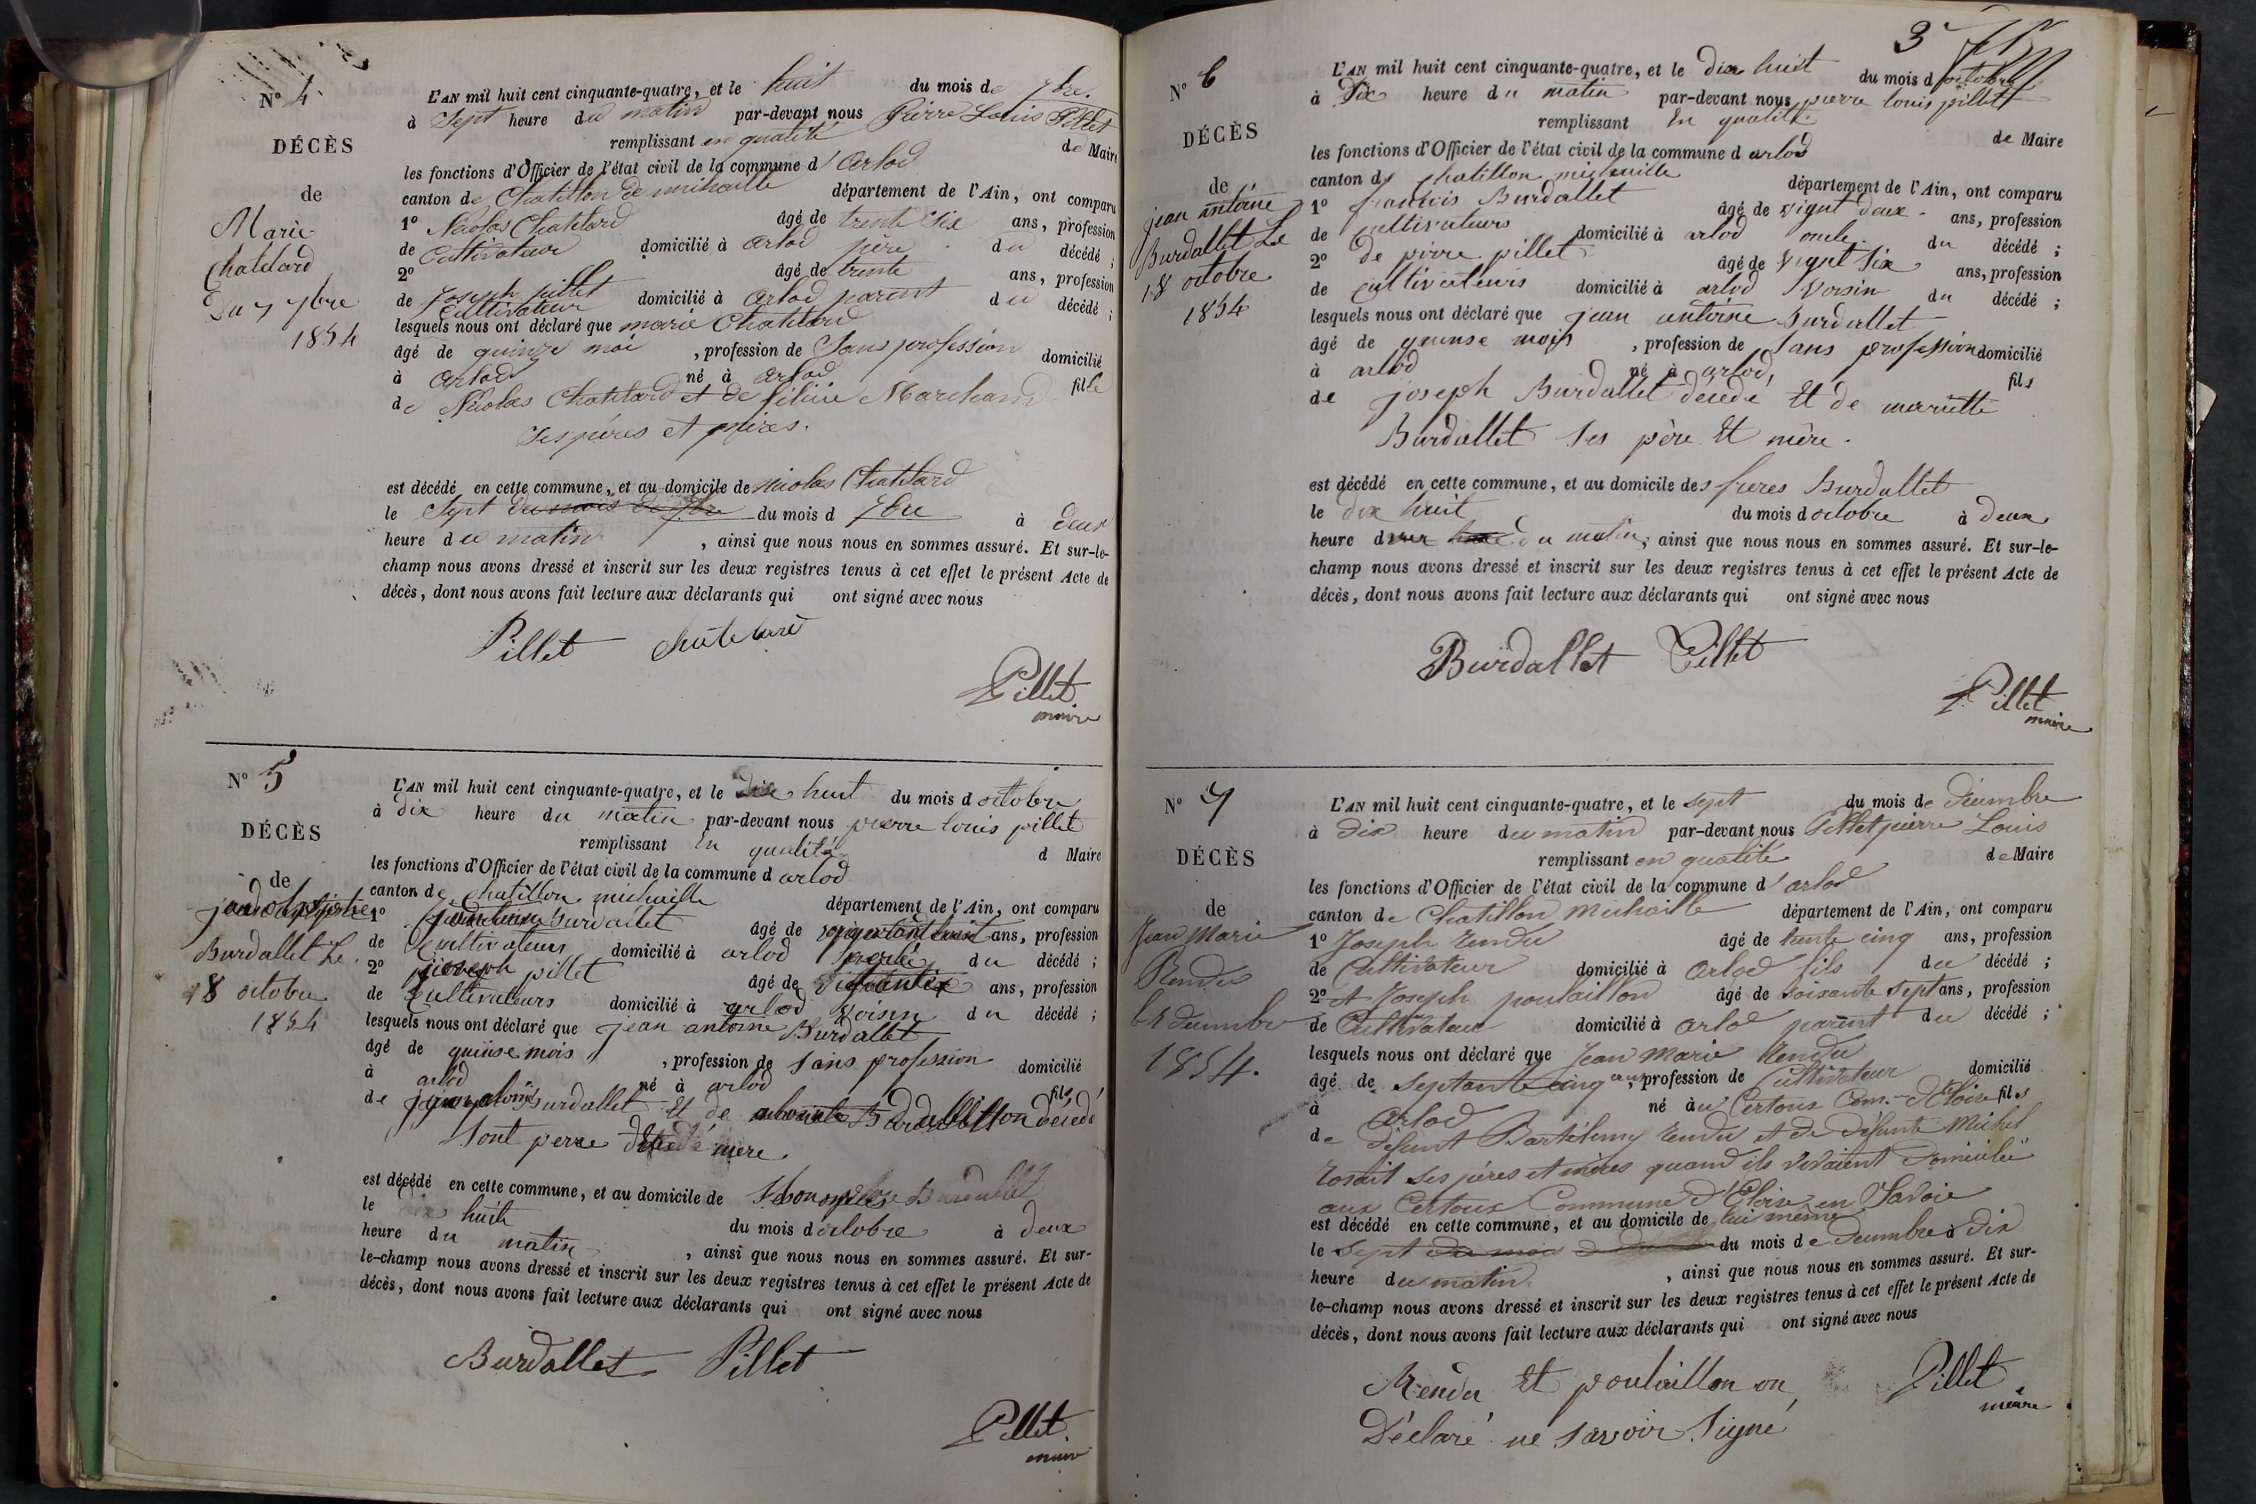 N° 4
DÉCÈS
de
Marie
Chatelard
Du 7 7bre
1854
L'AN mil huit cent cinquante-quatre, et le huit du mois de 7bre.
à Sept heure du matin par-devant nous Pierre Louis Pillet
remplissant en qualité de Maire
les fonctions d'Officier de l'état civil de la commune d'Arlod
canton de Chatillon de michaille département de l'Ain, ont comparu
1° Nicolas Chatelard âgé de trente six ans, profession
de Cultivateur domicilié à Arlod père du décédé ;
2° Joseph pillet âgé de trente ans, profession
de Cultivateur domicilié à Arlod parent du décédé ;
lesquels nous ont déclaré que marie Chatelard
âgé de quinze moi , profession de Sans profession domicilié
à Arlod né à Arlod fille
de Nicolas Chatelard et de Marchand
Ses pères et mères.
est décédé en cette commune, et au domicile de Nicolas Chatelard
le Sept du mois de 7bre du mois d 7bre à deux
heure du matin , ainsi que nous nous en sommes assuré. Et sur-le-
champ nous avons dressé et inscrit sur les deux registres tenus à cet effet le présent Acte de
décès, dont nous avons fait lecture aux déclarants qui ont signé avec nous
Pillet Chatelard
Pillet
maire
N° 5
DÉCÈS
de
Burdallet Le
18 octobre
1854
L'AN mil huit cent cinquante-quatre, et le dix huit du mois d octobre
à dix heure du matin par-devant nous pierre louis pillet
remplissant En qualité d Maire
les fonctions d'Officier de l'état civil de la commune d arlod
canton de chatillon michaille département de l'Ain, ont comparu
1° Burdallet âgé de ans, profession
de Cultivateurs domicilié à arlod du décédé ;
2° joseph pillet âgé de ans, profession
de Cultivateurs domicilié à arlod voisin du décédé ;
lesquels nous ont déclaré que jean antoine Burdallet
âgé de quinse mois , profession de sans profession domicilié
à arlod né à arlod fils
de Burdallet Et de décédé
sont perre mere.
est décédé en cette commune, et au domicile de
le dix huit du mois d octobre à deux
heure du matin , ainsi que nous nous en sommes assuré. Et sur-
le-champ nous avons dressé et inscrit sur les deux registres tenus à cet effet le présent Acte de
décès, dont nous avons fait lecture aux déclarants qui ont signé avec nous
Burdallet Pillet
Pillet
maire
3
N° 6
DÉCÈS
de
jean antoine
Burdallet Le
18 octobre
1854
L'AN mil huit cent cinquante-quatre, et le dix huit du mois d octobre
à Dix heure du matin par-devant nous pierre louis pillet
remplissant En qualité de Maire
les fonctions d'Officier de l'état civil de la commune d arlod
canton de chatillon michaille département de l'Ain, ont comparu
1° francois Burdallet âgé de vignt deux ans, profession
de cultivateurs domicilié à arlod oncle du décédé ;
2° de pirre pillet âgé de vignt six ans, profession
de cultivateurs domicilié à arlod voisin du décédé ;
lesquels nous ont déclaré que jean antoine Burdallet
âgé de quinse mois , profession de sans profession domicilié
à arlod né à arlod, fils
de joseph Burdallet décédé Et de mariette
Burdallet ses père Et mère.
est décédé en cette commune, et au domicile des freres Burdallet
le dix huit du mois d octobre à deux
heure du matin, ainsi que nous nous en sommes assuré. Et sur-le-
champ nous avons dressé et inscrit sur les deux registres tenus à cet effet le présent Acte de
décès, dont nous avons fait lecture aux déclarants qui ont signé avec nous
Burdallet Pillet
Pillet
maire
N° 7
DÉCÈS
de
Jean Marie
Rendu
le 7 décembre
1854.
L'AN mil huit cent cinquante-quatre, et le sept du mois de décembre
à dix heure du matin par-devant nous Pillet pierre Louis
remplissant en qualité de Maire
les fonctions d'Officier de l'état civil de la commune d'arlod
canton de Chatillon Michaille département de l'Ain, ont comparu
1° Joseph rendu âgé de trente cinq ans, profession
de Cultivateur domicilié à Arlod fils du décédé ;
2° et Joseph poulaillon âgé de soixante sept ans, profession
de Cultivateur domicilié à arlod parent du décédé ;
lesquels nous ont déclaré que Jean Marie Rendu
âgé de septante cinq ans, profession de Cultivateur domicilié
à Arlod né au Certoux Com. d'Eloise fils
de défunt Bartelemy rendu et de défunte Michel
ses pères et mères quand ils vivaient domicilié
aux Certoux Commune d'Eloise en Savoie
est décédé en cette commune, et au domicile de lui même
le sept du mois du mois de décembre à dix
heure du matin , ainsi que nous nous en sommes assuré. Et sur-
le-champ nous avons dressé et inscrit sur les deux registres tenus à cet effet le présent Acte de
décès, dont nous avons fait lecture aux déclarants qui ont signé avec nous
Rendu Et poulaillon on
Déclaré ne savoir signé
Pillet
maire